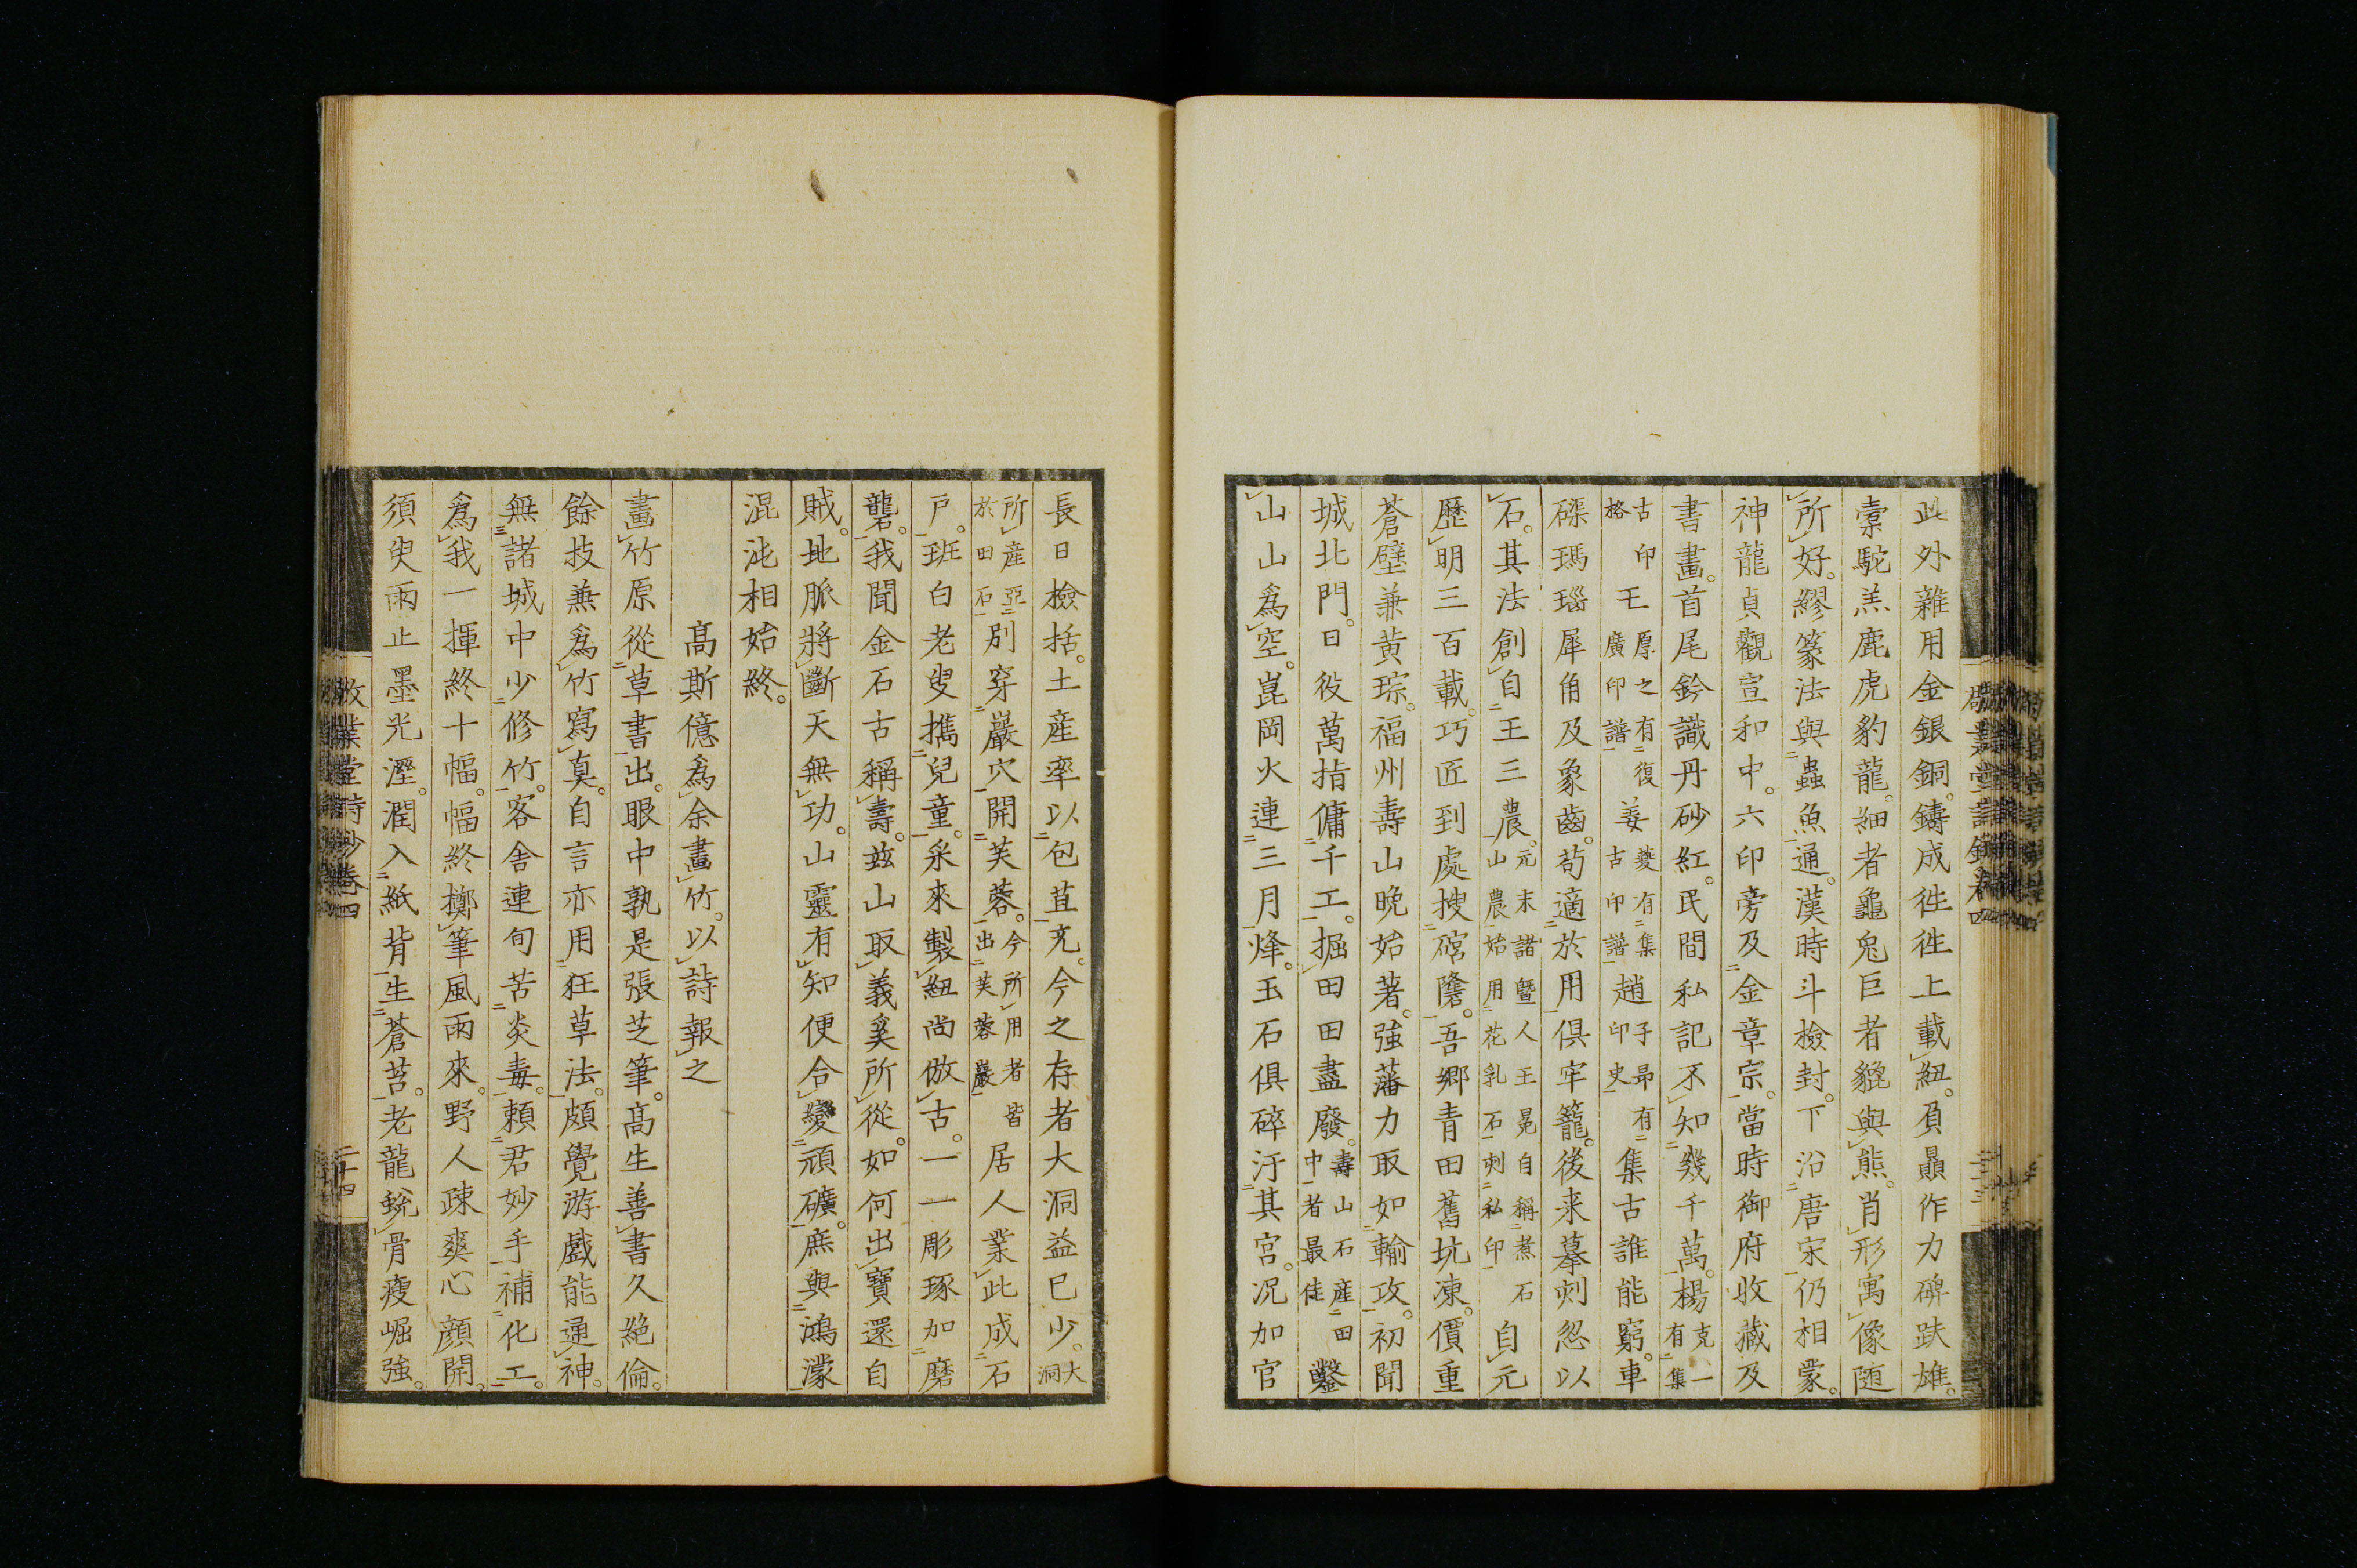 此外雜用金銀銅。鑄成往往上載紐。負贔作力碑趺雄。
橐駝羔鹿虎豹龍。細者龜兔巨者貔與熊。肖形寓像随
所好。繆篆法與蟲魚通。漢時斗檢封。下沿唐宋仍相蒙。
神龍貞觀宣和中。六印旁及金章宗。當時御府收藏及
書畫。首尾鈐識丹砂紅。民間私記不知幾千萬。楊克一有集
古印格王原之有復廣印譜姜夔有集古印譜趙子昂有印史集古誰能窮。車
磲瑪瑙犀角及象齒。苟適於用俱牢籠。後来摹刻忽以
石。其法創自王三農。元末諸曁人王冕自稱煮石山農始用花乳石刻私印自元
歷明三百載。巧匠到處搜硿隆。吾鄉青田舊坑凍。價重
蒼壁兼黄琮。福州壽山晚始著。強藩力取如輸攻。初聞
城北門。日役萬指傭千工。掘田田盡廢。壽山石産田中者最佳鑿
山山為空。崑岡火連三月烽。玉石俱碎汙其宮。况加官
長日檢括。土産率以包苴充。今之存者大洞益已少。大洞
所産亞於田石別穿巖穴開芙蓉。今所用者皆出芙蓉巖居人業此成石
戶。班白老叟攜兒童。采來製紐尚倣古。一一彫琢加磨
礱。我聞金石古稱壽。兹山取義奚所從。如何出寶還自
賊。地脈將斷天無功。山靈有知便合變頑礦。庶與鴻濛
混沌相始終。
高斯億為余畫竹。以詩報之
畫竹原從草書出。眼中孰是張芝筆。高生善書久絶倫。
餘技兼為竹寫真。自言亦用狂草法。頗覺游戲能通神。
無諸城中少修竹。客舍連旬苦炎毒。頼君妙手補化工。
為我一揮終十幅。幅終擲筆風雨來。野人疎爽心顔開。
須臾雨止墨光溼。潤入紙背生蒼苔。老龍蛻骨瘦崛強。
敬業堂詩鈔卷四
二十四